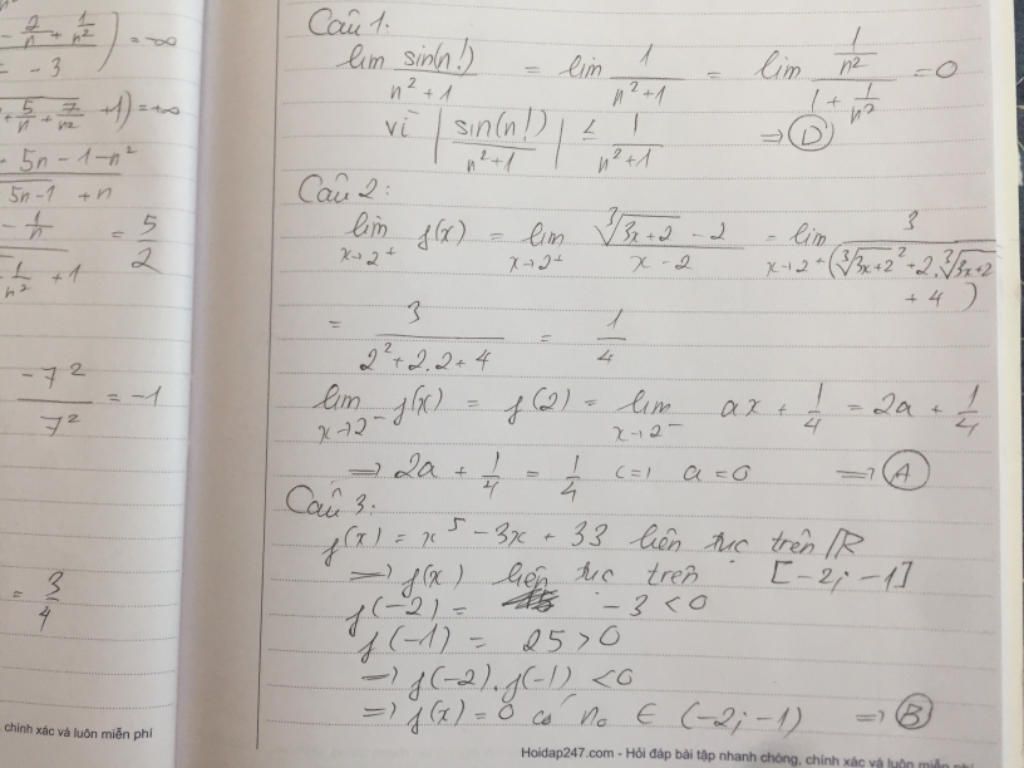 - 2/n + 1/n²
) = -∞
= -3
+ 5/n + 7/n² + 1) = +∞
5n - 1 - n²
5n-1 + n
- 1/n
= 5/2
1/n² + 1
-7²/7² = -1
= 3/4
chính xác và luôn miễn phí
Câu 1:
lim sin(n!)/(n²+1) = lim 1/(n²+1) = lim (1/n²)/(1 + 1/n²) = 0
vì |sin(n!)/(n²+1)| ≤ 1/(n²+1) ⇒ D
Câu 2:
lim x→2⁺ f(x) = lim x→2⁺ (∛(3x+2) - 2)/(x-2) = lim x→2⁺ 3/(∛(3x+2)² + 2.∛(3x+2) + 4)
= 3/(2²+2.2+4) = 1/4
lim x→2⁻ f(x) = f(2) = lim x→2⁻ ax + 1/4 = 2a + 1/4
⇒ 2a + 1/4 = 1/4 (=) a = 0 ⇒ A
Câu 3:
f(x) = x⁵ - 3x + 33 liên tục trên ℝ
⇒ f(x) liên tục trên [-2; -1]
f(-2) = -3 < 0
f(-1) = 25 > 0
⇒ f(-2).f(-1) < 0
⇒ f(x) = 0 có n₀ ∈ (-2; -1) ⇒ B
Hoidap247.com - Hỏi đáp bài tập nhanh chóng, chính xác và luôn miễn phí